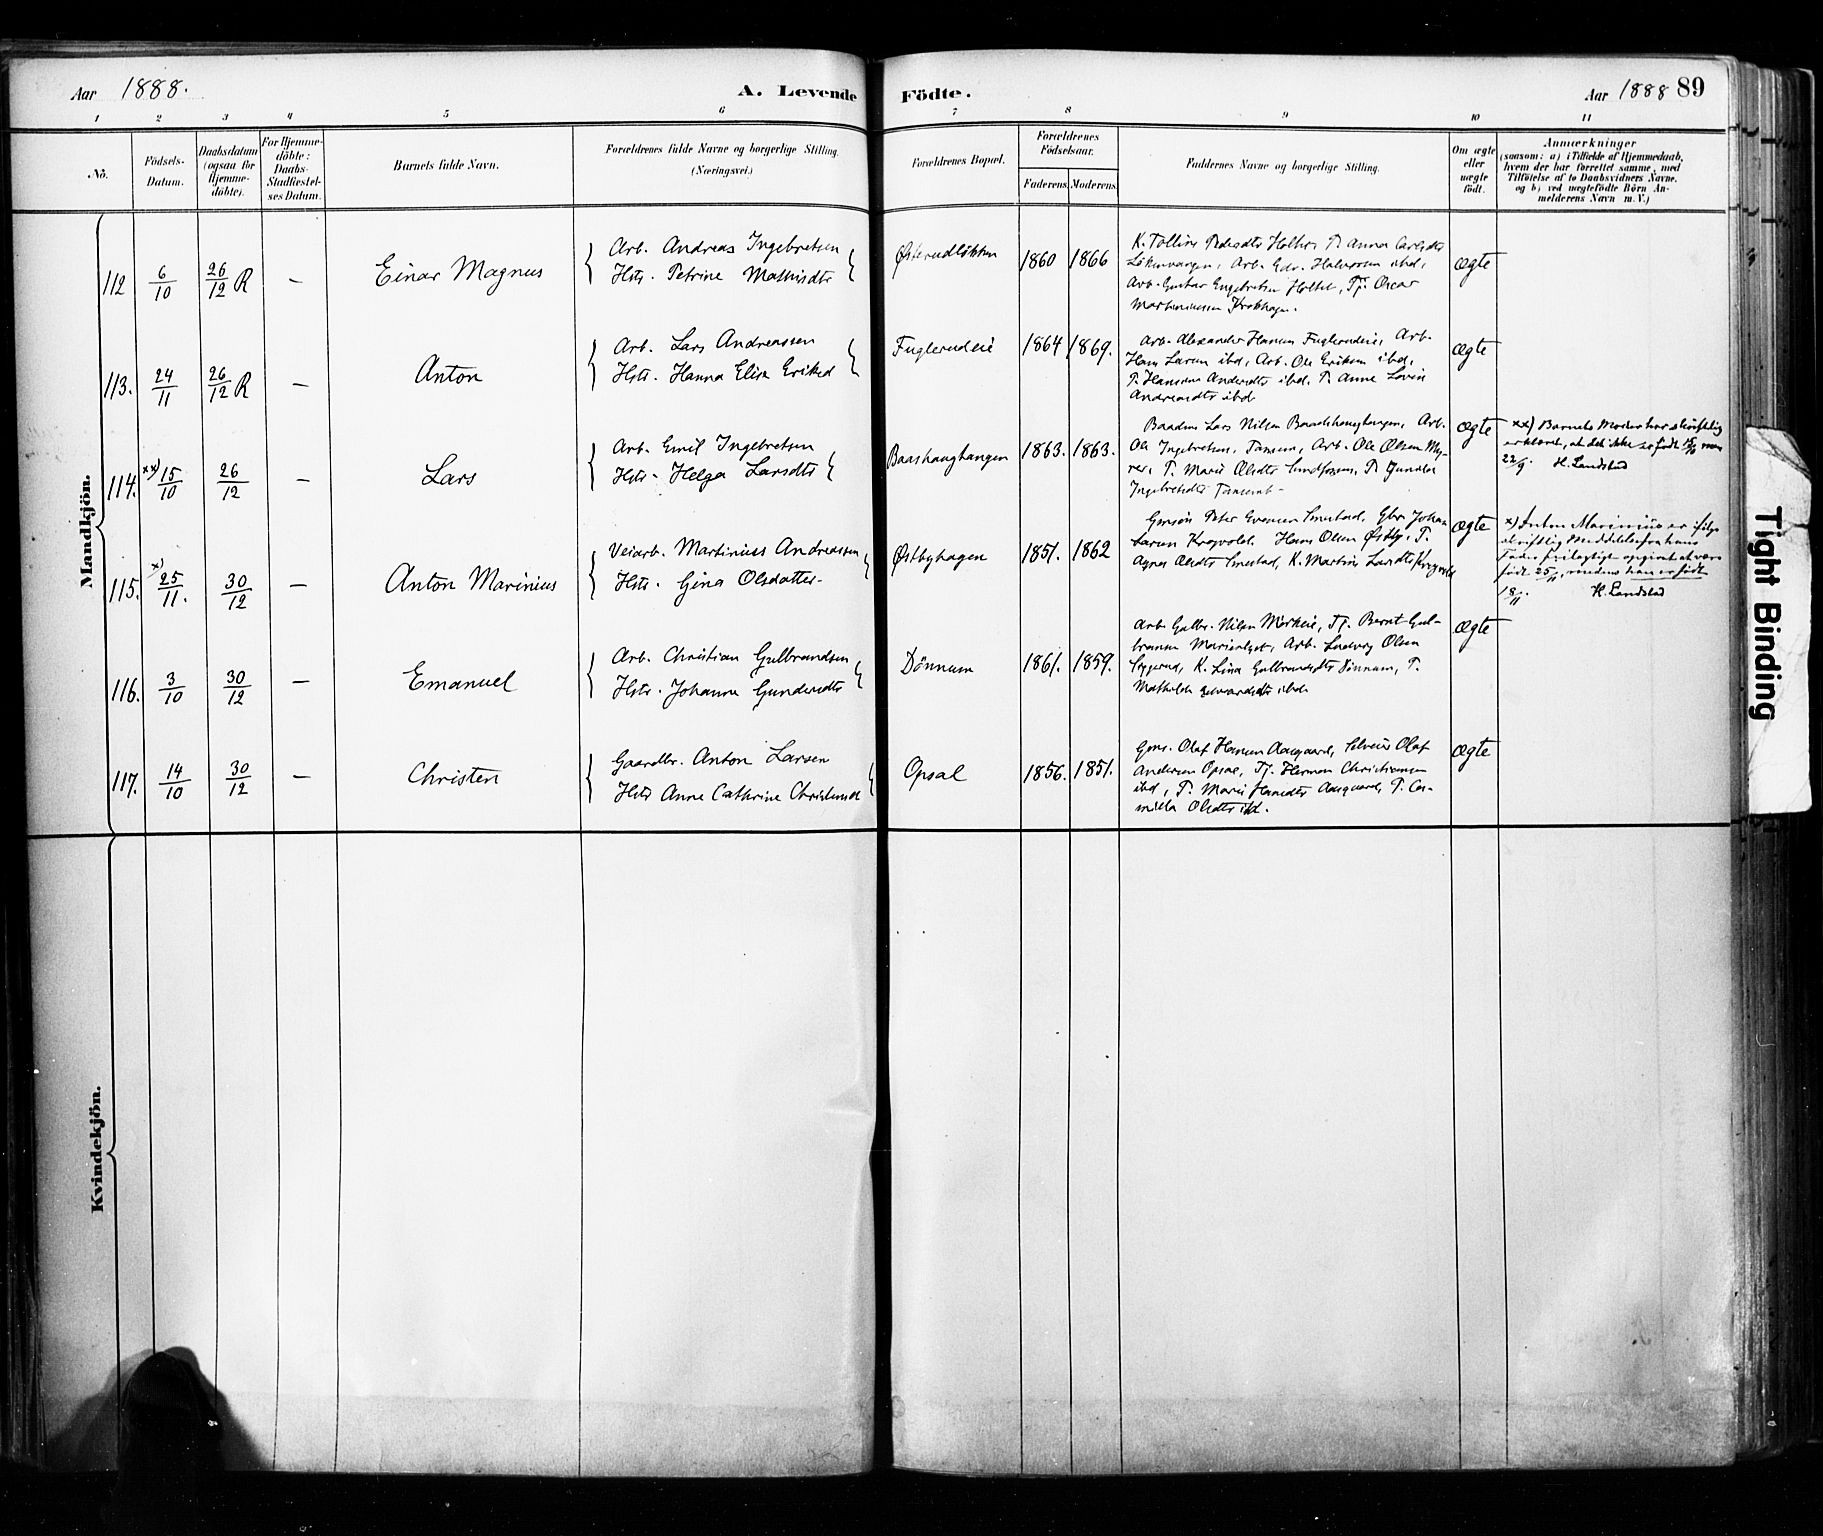 Aar 1888.
A. Levende Födte.
Aar 1888 89
1 2 3 4 5 6 7 8 9 10 11
No.
Födsels-
Datum.
Daabsdatum
(ogsaa for
Hjemme-
döbte).
For Hjemme-
döbte:
Daabs-
Stadfæstel-
ses Datum.
Barnets fulde Navn.
Forældrenes fulde Navne og borgerlige Stilling.
(Næringsvei.)
Forældrenes Bopæl.
Forældrenes
Födselsaar.
Faderens. Moderens.
Faddernes Navne og borgerlige Stilling.
Om ægte
eller
uægte
födt.
Anmærkninger
(saasom: a) i Tilfælde af Hjemmedaab,
hvem der har forrettet samme, med
Tilföielse af to Daabsvidners Navne.
og b) ved uægtefödte Börn An-
melderens Navn m. V.)
Mandkjön.
112 6/10 26/12 R — Einar Magnus
Arb. Andreas Ingebretsen
Hstr. Petrine Mathisdtr
Østerudløkken 1860 1866
Arb. Edv. Halvorsen ibd,
Arb. Gustav Engebretsen Holtet, Tj. Oscar
ægte
113. 24/11 26/12 R — Anton
Arb. Lars Andreassen
Hstr. Hanna Elise Eriksd
Fuglerudeie 1864 1869.
Arb. Alexander Hansen Fuglerudeie, Arb.
Hans Larsen ibd, Arb. Ole Eriksen ibd,
P. Anne Lovise
Andreasdtr ibd
ægte
114. xx) 15/10 26/12 — Lars
Arb. Emil Ingebretsen
Hstr. Helga Larsdtr
Baashaughagen 1863. 1863.
Lars Nilsen Baashaughagen, Arb.
Ole Ingebretsen, Tansem, Arb. Ole Olsen My-
rer, P. Marie Olsdtr P. Gunda
Ingebretsdtr
ægte
xx) Barnets Moder har skriftlig
erklæret, at det ikke er født 15/10 men
22/9. H. Landstad
115. x) 25/11. 30/12 — Anton Marinius
Veiarb. Martinius Andreassen
Hstr. Gina Olsdatter
Østbyhagen 1851. 1862
Peter Evensen Smestad, Gbr. Johan
Larsen Krogvold. Hans Olsen Østby, P.
Agnes Olsdtr Smestad, K. Martine Larsdtr Krogvold
ægte
x) Anton Marinius er ifølge
skriftlig Meddelelse fra hans
Fader feilagtigt opgivet at være
født 25/11, medens han er født
18/11. H. Landstad
116. 3/10 30/12 — Emanuel
Arb. Christian Gulbrandsen
Hstr. Johanne Gundersdtr
Dönnum 1861. 1859.
Arb. Gulbr. Nilsen Mørkeie, Tj. Bernt Gul-
bransen Arb. Ludvig Olsen
K. Lina Gulbrandsdtr Dönnum, P.
Mathilde Edvardsdtr ibd.
ægte
117. 14/10 30/12 — Christen
Gaardbr. Anton Larsen
Hstr Anne Cathrine
Opsal 1856. 1851.
Gms. Olaf Hansen Aasgaard, Selveier Olaf
Andersen Opsal, Tj. Herman Christiansen
ibd, P. Marie Hansdtr Aasgaard, P. Ca-
milla Olsdtr ibd.
ægte
Kvindekjön.
Tight Binding